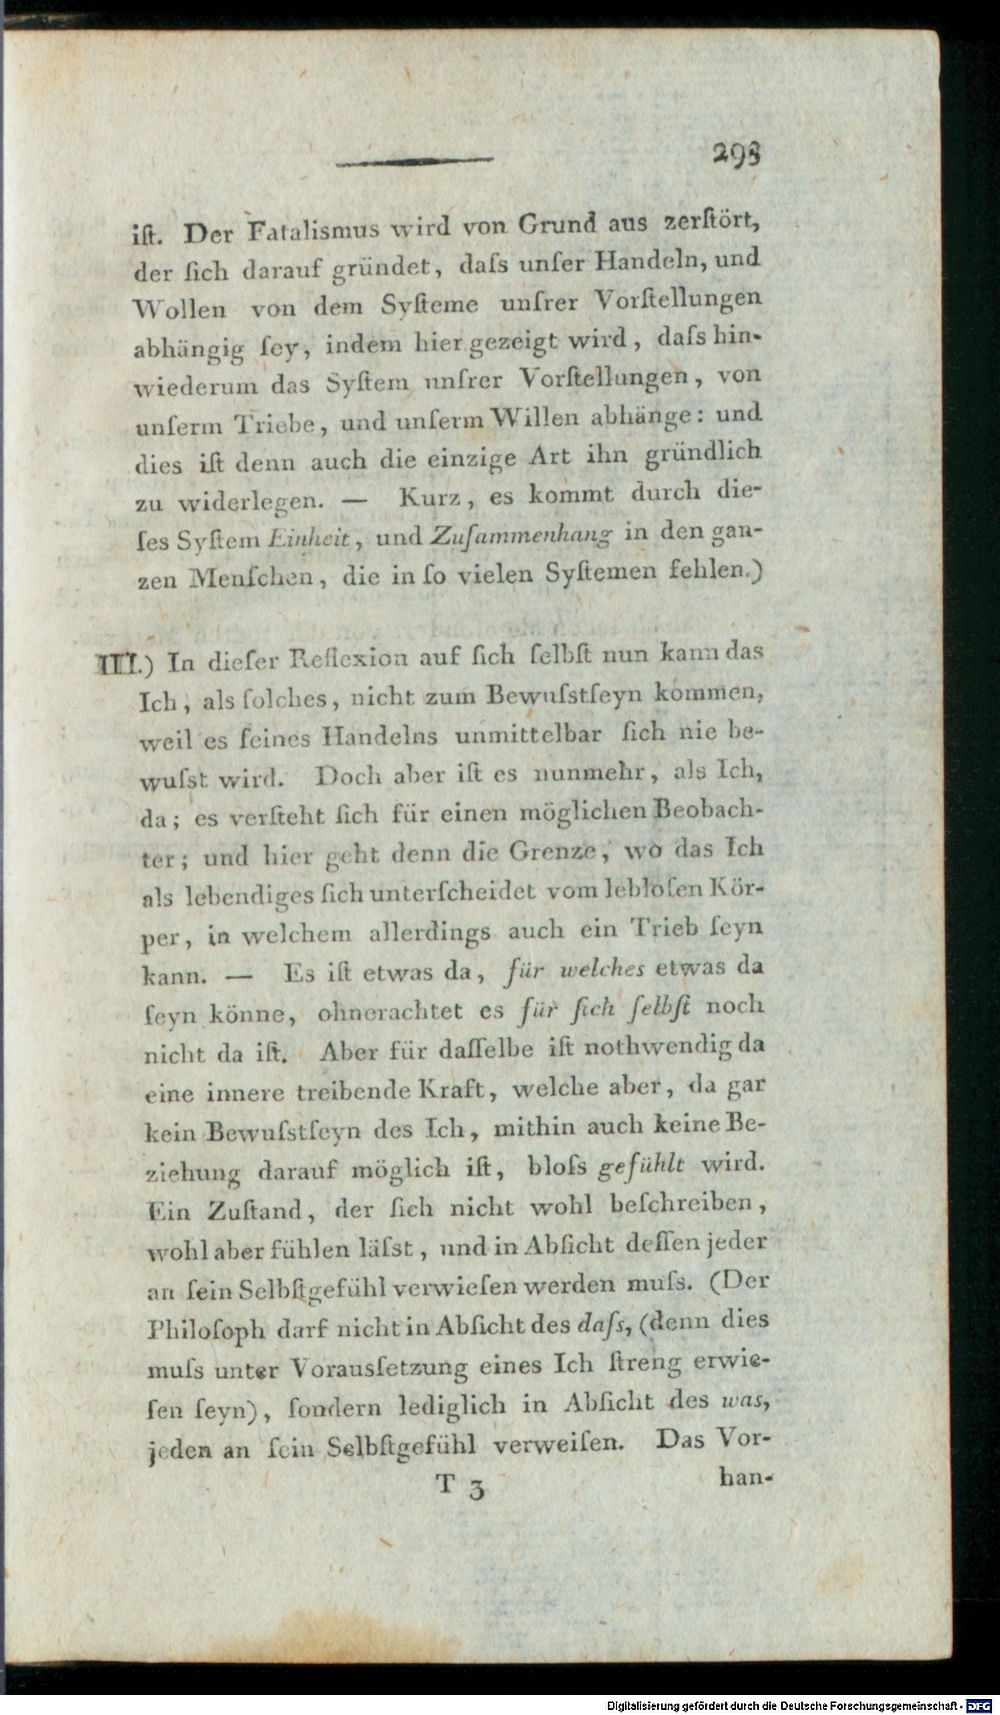 293
iſt. Der Fatalismus wird von Grund aus zerſtört,
der ſich darauf gründet, daſs unſer Handeln, und
Wollen von dem Syſteme unſrer Vorſtellungen
abhängig ſey, indem hier gezeigt wird, daſs hin-
wiederum das Syſtem unſrer Vorſtellungen, von
unſerm Triebe, und unſerm Willen abhänge: und
dies iſt denn auch die einzige Art ihn gründlich
zu widerlegen. — Kurz, es kommt durch die-
ſes Syſtem Einheit, und Zuſammenhang in den gan-
zen Menſchen, die in ſo vielen Syſtemen fehlen.)
III.) In dieſer Reflexion auf ſich ſelbſt nun kann das
Ich, als ſolches, nicht zum Bewuſstſeyn kommen,
weil es ſeines Handelns unmittelbar ſich nie be-
wuſst wird. Doch aber iſt es nunmehr, als Ich,
da; es verſteht ſich für einen möglichen Beobach-
ter; und hier geht denn die Grenze, wo das Ich
als lebendiges ſich unterſcheidet vom lebloſen Kör-
per, in welchem allerdings auch ein Trieb ſeyn
kann. — Es iſt etwas da, für welches etwas da
ſeyn könne, ohnerachtet es für ſich ſelbſt noch
nicht da iſt. Aber für daſſelbe iſt nothwendig da
eine innere treibende Kraft, welche aber, da gar
kein Bewuſstſeyn des Ich, mithin auch keine Be-
ziehung darauf möglich iſt, bloſs gefühlt wird.
Ein Zuſtand, der ſich nicht wohl beſchreiben,
wohl aber fühlen läſst, und in Abſicht deſſen jeder
an ſein Selbſtgefühl verwieſen werden muſs. (Der
Philoſoph darf nicht in Abſicht des daſs, (denn dies
muſs unter Vorausſetzung eines Ich ſtreng erwie-
ſen ſeyn), ſondern lediglich in Abſicht des was,
jeden an ſein Selbſtgefühl verweiſen. Das Vor-
T 3 han-
Digitalisierung gefördert durch die Deutsche Forschungsgemeinschaft - DFG